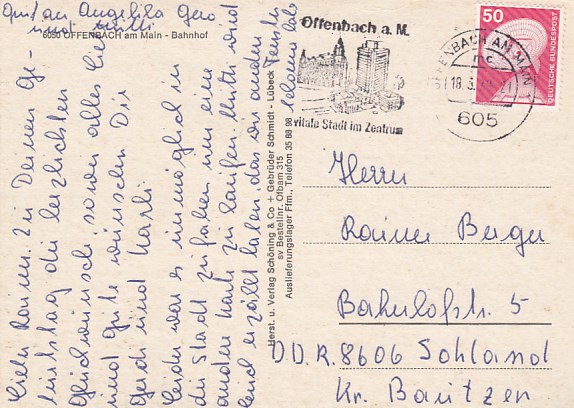 Gruß an Angelika Gero
und Mutti
6050 OFFENBACH am Main - Bahnhof
Lieber Rainer. Zu Deinem Ge-
burtstag die herzlichsten
Glückwünsche, sowie alles Liebe
und Gute wünschen Dir
Gerdi und Karli
Leider war es unmöglich in
die Stadt zu fahren um eine
andere Karte zu kaufen. Mutti wird
euch erzählt haben, das wir anders
Fenster
Herst. u. Verlag Schöning & Co + Gebrüder Schmidt - Lübeck
sv Bestellnr. Ofbam 315
Auslieferungslager Ffm., Telefon 35 88 98
Offenbach a. M.
vitale Stadt im Zentrum
OFFENBACH AM MAIN
18.3.
605
50
DEUTSCHE BUNDESPOST
Herrn
Rainer Berger
Bahnhofstr. 5
D.D.R. 8606 Sohland
Kr. Bautzen